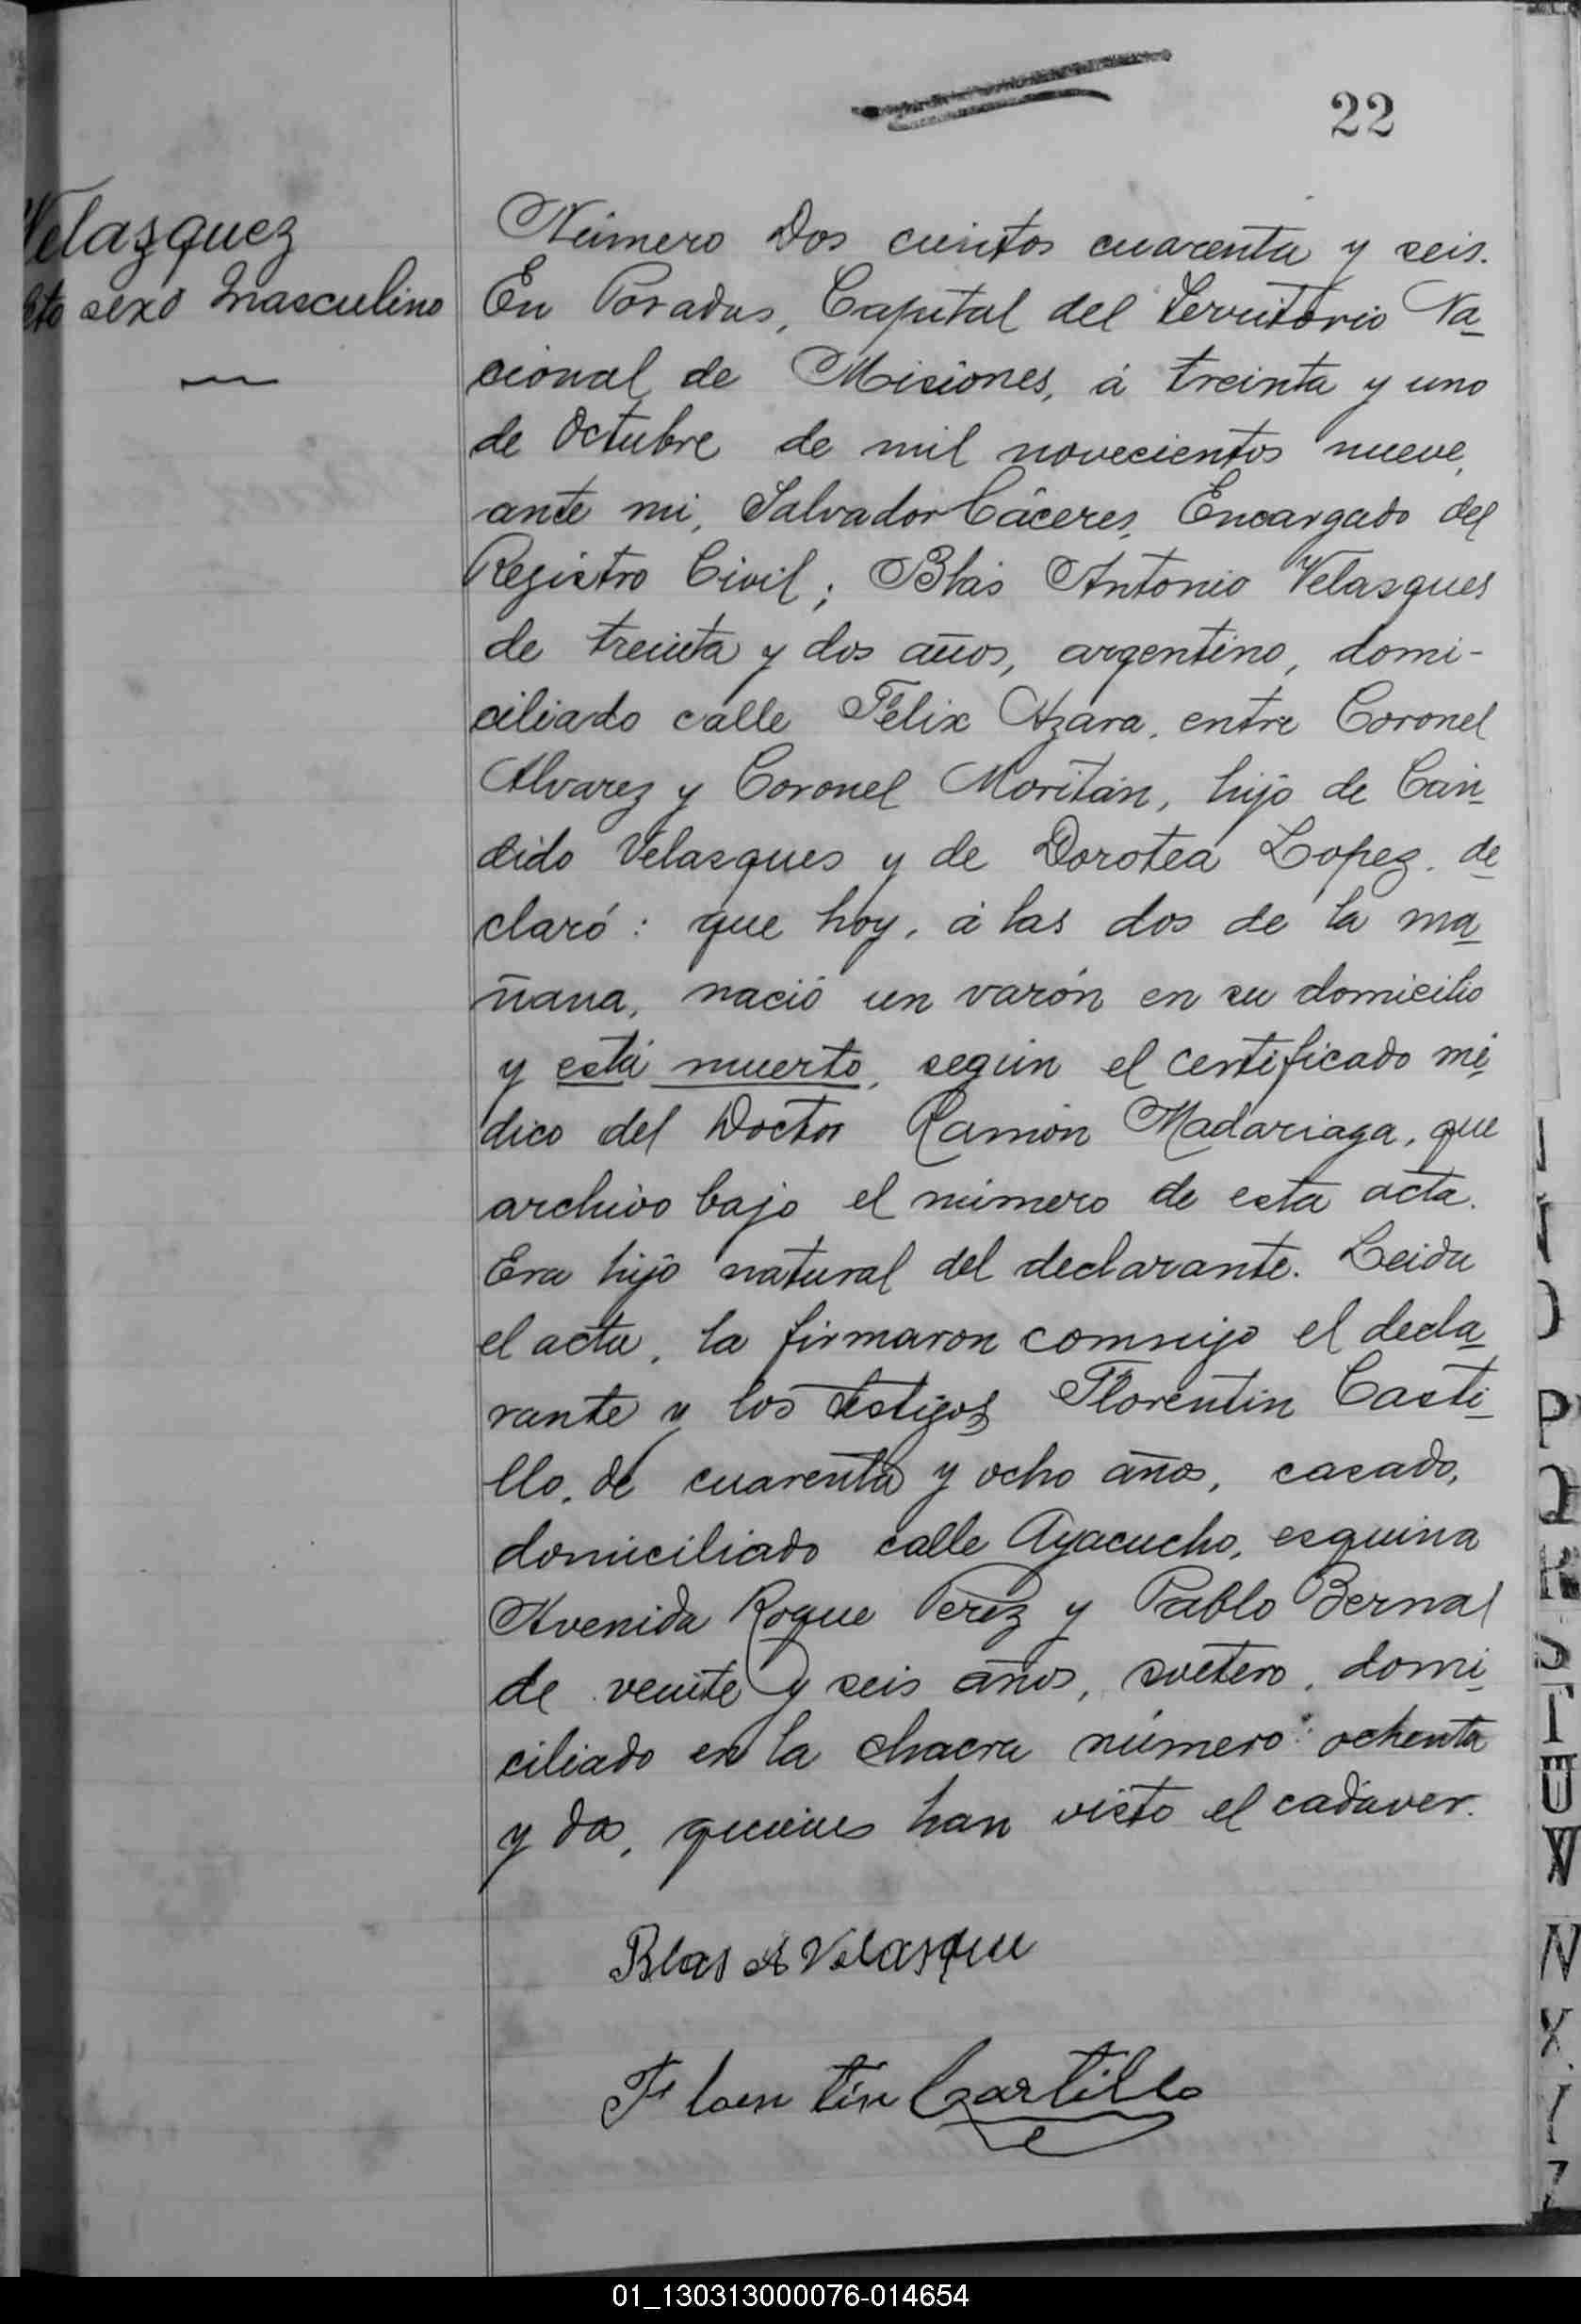 22
Velazquez
sexo masculino
Número Dos cientos cuarenta y seis.
En Posadas, Capital del Territorio Na-
cional de Misiones, á treinta y uno
de Octubre de mil novecientos nueve,
ante mi, Salvador Cáceres, Encargado del
Registro Civil; Blás Antonio Velasques
de treinta y dos años, argentino, domi-
ciliado calle Félix Azara, entre Coronel
Alvarez y Coronel Moritán, hijo de Cán-
dido Velasques y de Dorotea Lopez, de-
claró: que hoy, á las dos de la ma-
ñana, nació un varón en su domicilio
y está muerto, según el certificado mé-
dico del Doctor Ramón Madariaga, que
archivo bajo el número de esta acta.
Era hijo natural del declarante. Leida
el acta, la firmaron conmigo el decla-
rante y los testigos Florentin Casti-
llo, de cuarenta y ocho años, casado,
domiciliado calle Ayacucho, esquina
Avenida Roque Perez y Pablo Bernal
de veinte y seis años, soltero, domi-
ciliado en la chacra número: ochenta
y dos, quienes han visto el cadáver.
Blas A Velasque
Floentin Castillo
P
Q
R
S
T
U
V
X
Z
01_130313000076-014654